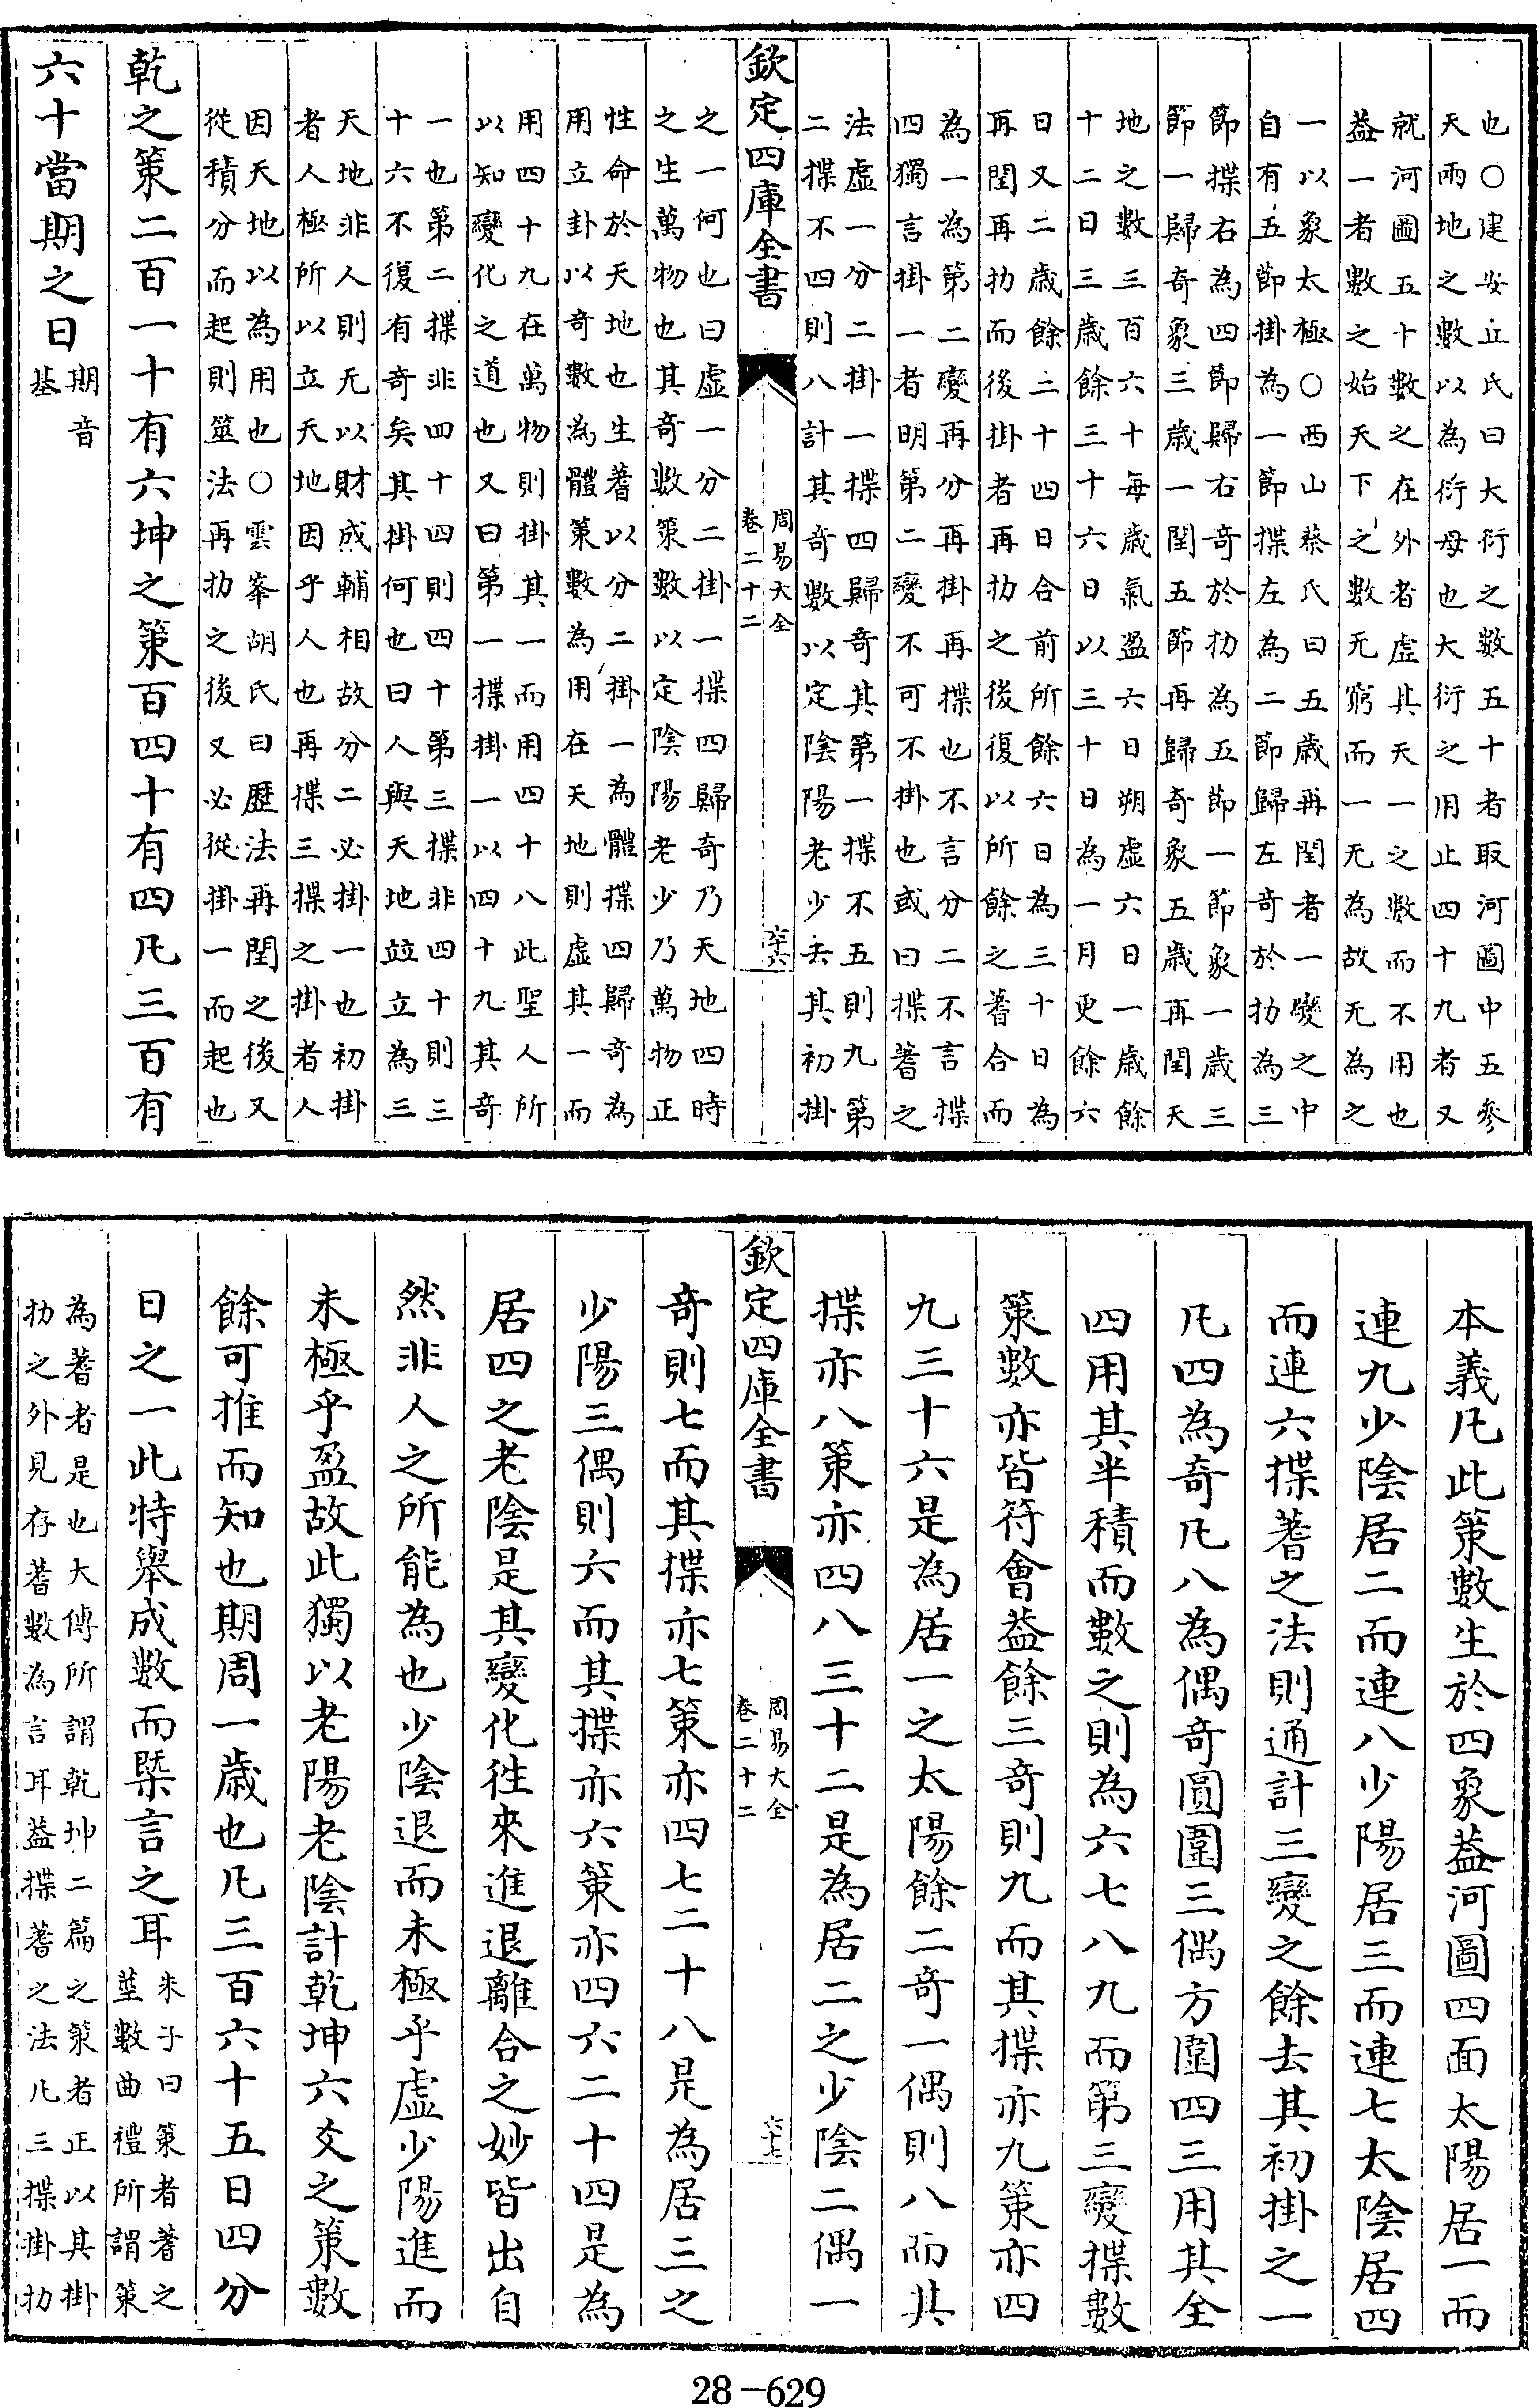 也○建安丘氏曰大衍之數五十者取河圖中五參
天兩地之數以為衍母也大衍之用止四十九者又
就河圖五十數之在外者虛其天一之數而不用也
蓋一者數之始天下之數无窮而一无為故无為之
一以象太極○西山蔡氏曰五歲再閏者一變之中
自有五節掛為一節揲左為二節歸左奇於扐為三
節揲右為四節歸右奇於扐為五節一節象一歲三
節一歸奇象三歲一閏五節再歸奇象五歲再閏天
地之數三百六十每歲氣盈六日朔虛六日一歲餘
十二日三歲餘三十六日以三十日為一月更餘六
日又二歲餘二十四日合前所餘六日為三十日為
再閏再扐而後掛者再扐之後復以所餘之蓍合而
為一為第二變再分再掛再揲也不言分二不言揲
四獨言掛一者明第二變不可不掛也或曰揲蓍之
法虛一分二掛一揲四歸奇其第一揲不五則九第
二揲不四則八計其奇數以定陰陽老少去其初掛
欽定四庫全書
周易大全
卷二十二
六十六
之一何也曰虛一分二掛一揲四歸奇乃天地四時
之生萬物也其奇數策數以定陰陽老少乃萬物正
性命於天地也生蓍以分二掛一為體揲四歸奇為
用立卦以奇數為體策數為用在天地則虛其一而
用四十九在萬物則掛其一而用四十八此聖人所
以知變化之道也又曰第一揲掛一以四十九其奇
一也第二揲非四十四則四十第三揲非四十則三
十六不復有奇矣其掛何也曰人與天地竝立為三
天地非人則无以財成輔相故分二必掛一也初掛
者人極所以立天地因乎人也再揲三揲之掛者人
因天地以為用也○雲峯胡氏曰歷法再閏之後又
從積分而起則筮法再扐之後又必從掛一而起也
乾之策二百一十有六坤之策百四十有四凡三百有
六十當期之日
期音
基
本義凡此策數生於四象蓋河圖四面太陽居一而
連九少陰居二而連八少陽居三而連七太陰居四
而連六揲蓍之法則通計三變之餘去其初掛之一
凡四為奇凡八為偶奇圓圍三偶方圍四三用其全
四用其半積而數之則為六七八九而第三變揲數
策數亦皆符會蓋餘三奇則九而其揲亦九策亦四
九三十六是為居一之太陽餘二奇一偶則八而其
揲亦八策亦四八三十二是為居二之少陰二偶一
欽定四庫全書
周易大全
卷二十二
六十七
奇則七而其揲亦七策亦四七二十八是為居三之
少陽三偶則六而其揲亦六策亦四六二十四是為
居四之老陰是其變化往來進退離合之妙皆出自
然非人之所能為也少陰退而未極乎虛少陽進而
未極乎盈故此獨以老陽老陰計乾坤六爻之策數
餘可推而知也期周一歲也凡三百六十五日四分
日之一此特舉成數而槩言之耳
朱子曰策者蓍之
莖數曲禮所謂策
為蓍者是也大傳所謂乾坤二篇之策者正以其掛
扐之外見存蓍數為言耳蓋揲蓍之法凡三揲掛扐
28-629